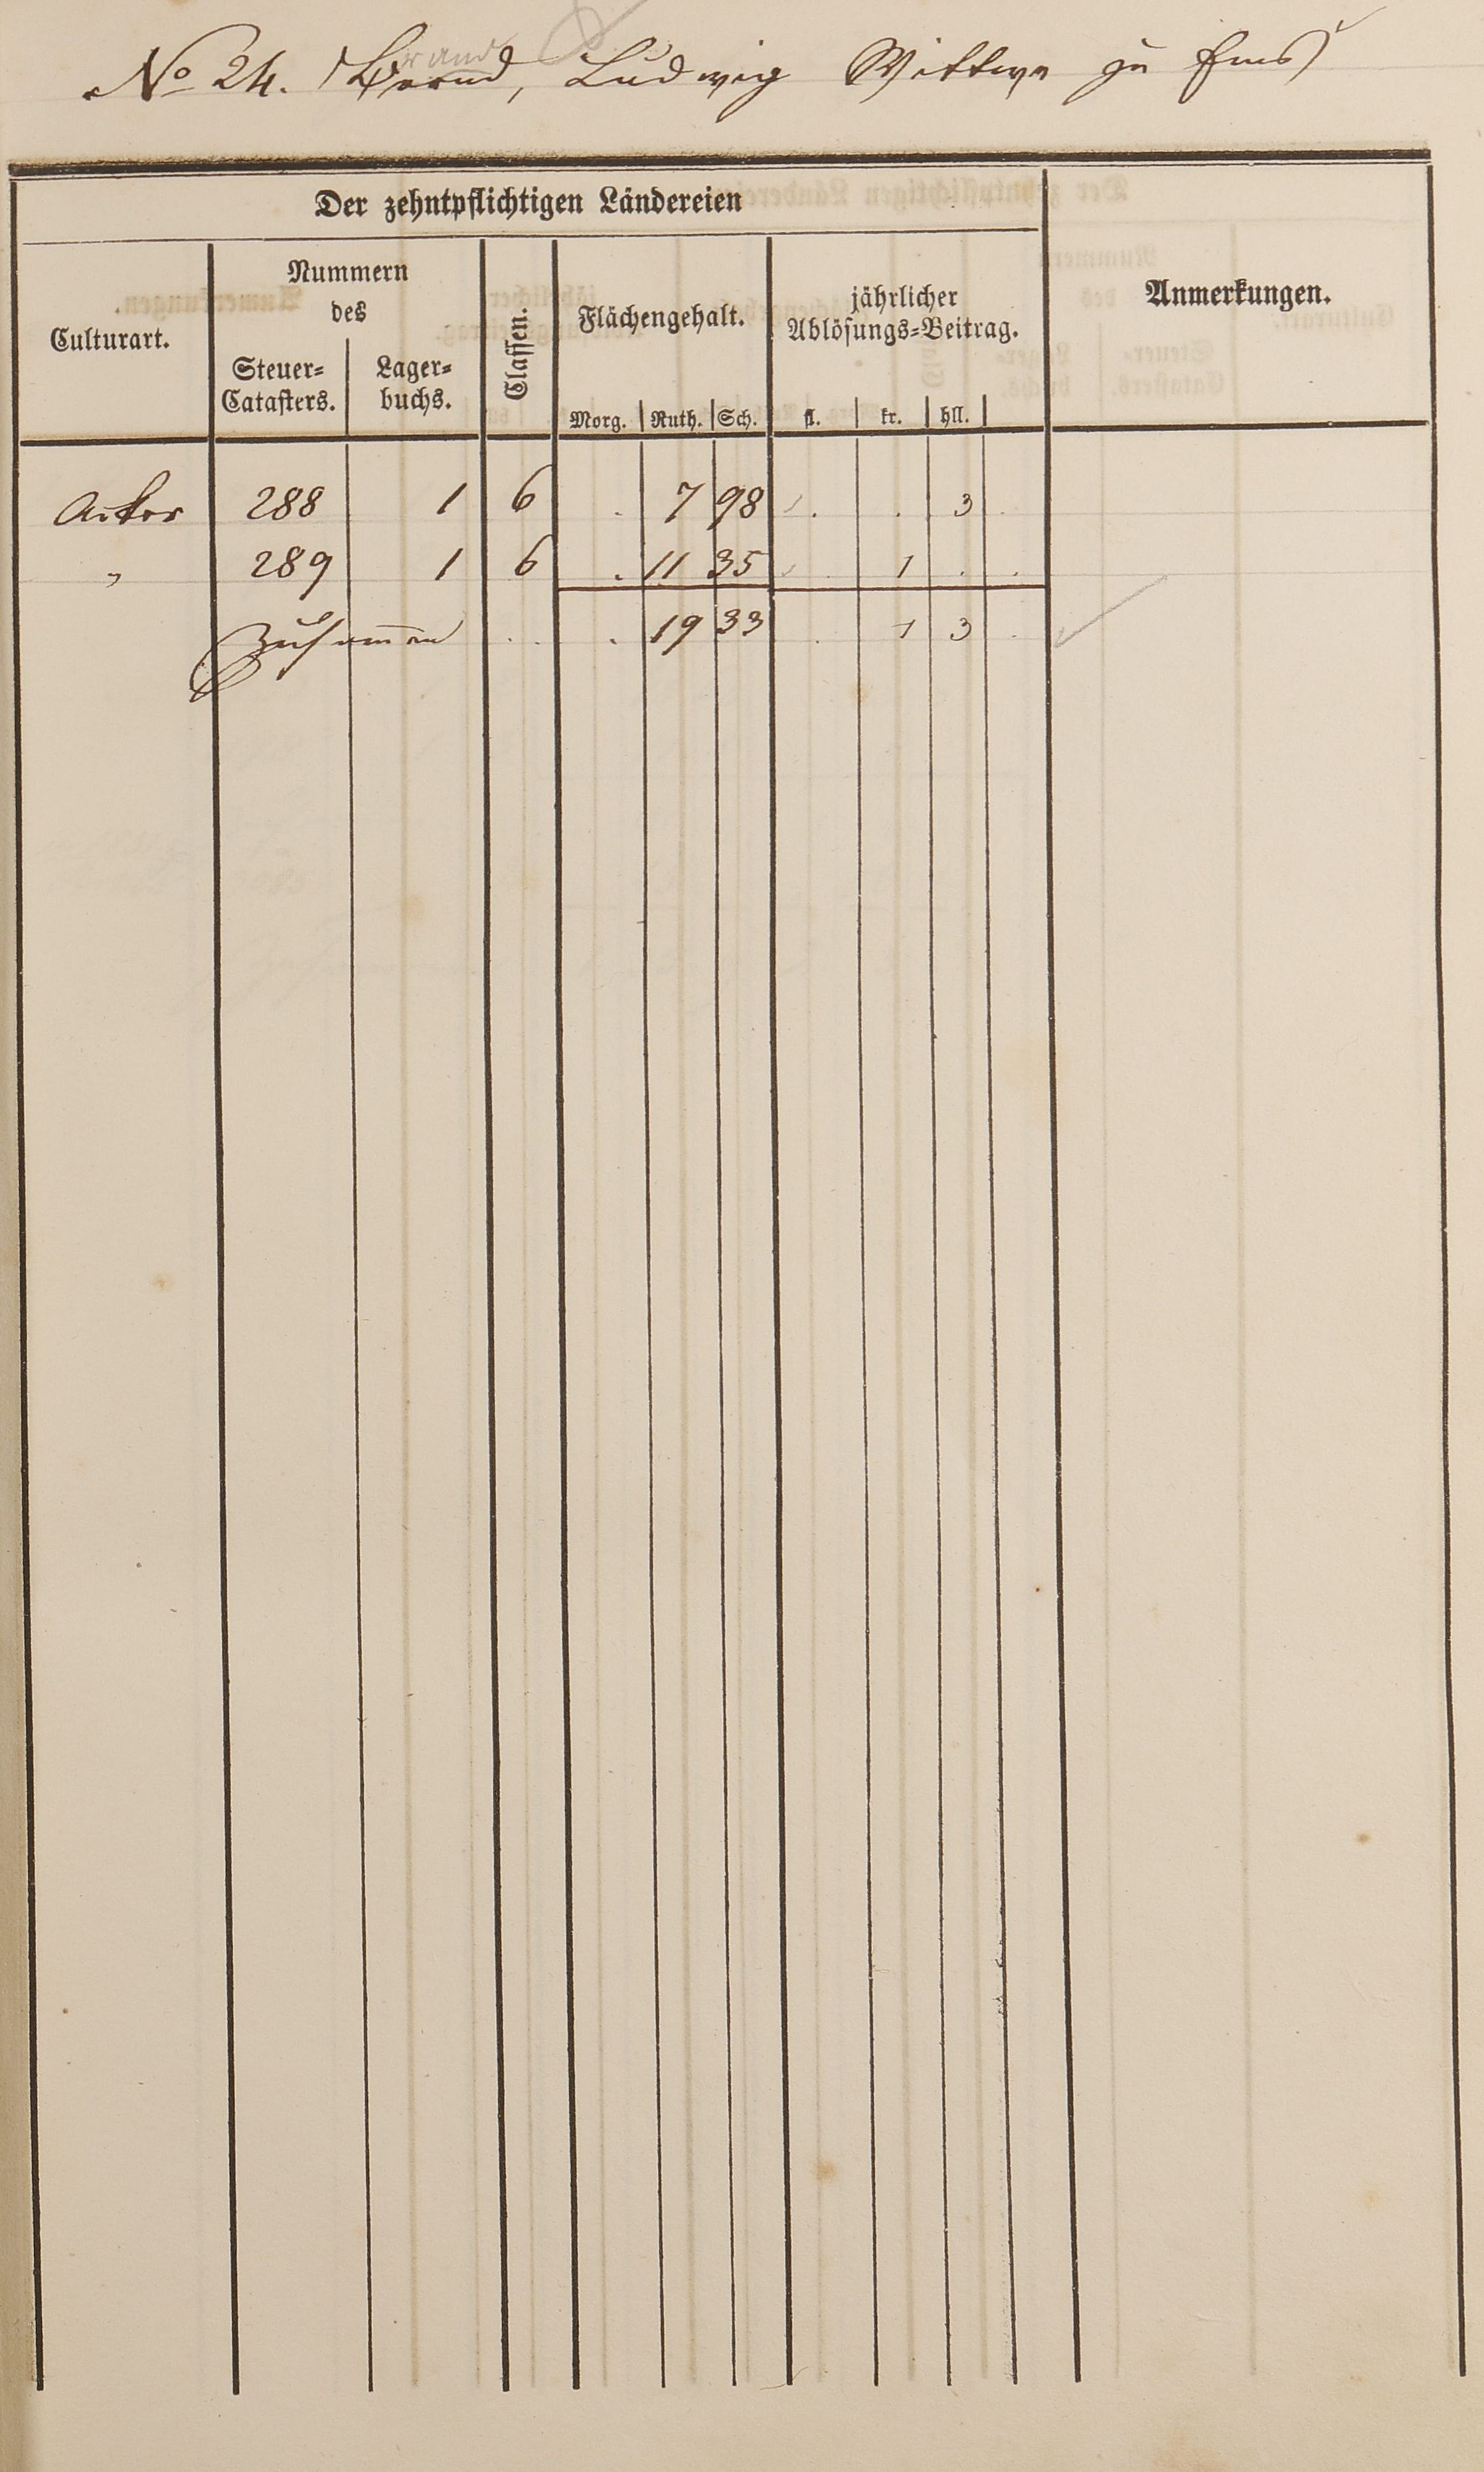 No 24. Bernd, Ludwig Wittwe zu Ems
Der zehntpflichtigen Ländereien
Culturart.
Nummern
des
Steuer-
Catasters.
Lager-
buchs.
Classen.
Flächengehalt.
Morg. Ruth. Sch.
jährlicher
Ablösungs-Beitrag.
fl. kr. hll.
Anmerkungen.
Acker 288 1 6 . 7 98 . . 3 .
" 289 1 6 . 11 35 . 1 . .
Zusammen . . . 19 33 . 1 3 .